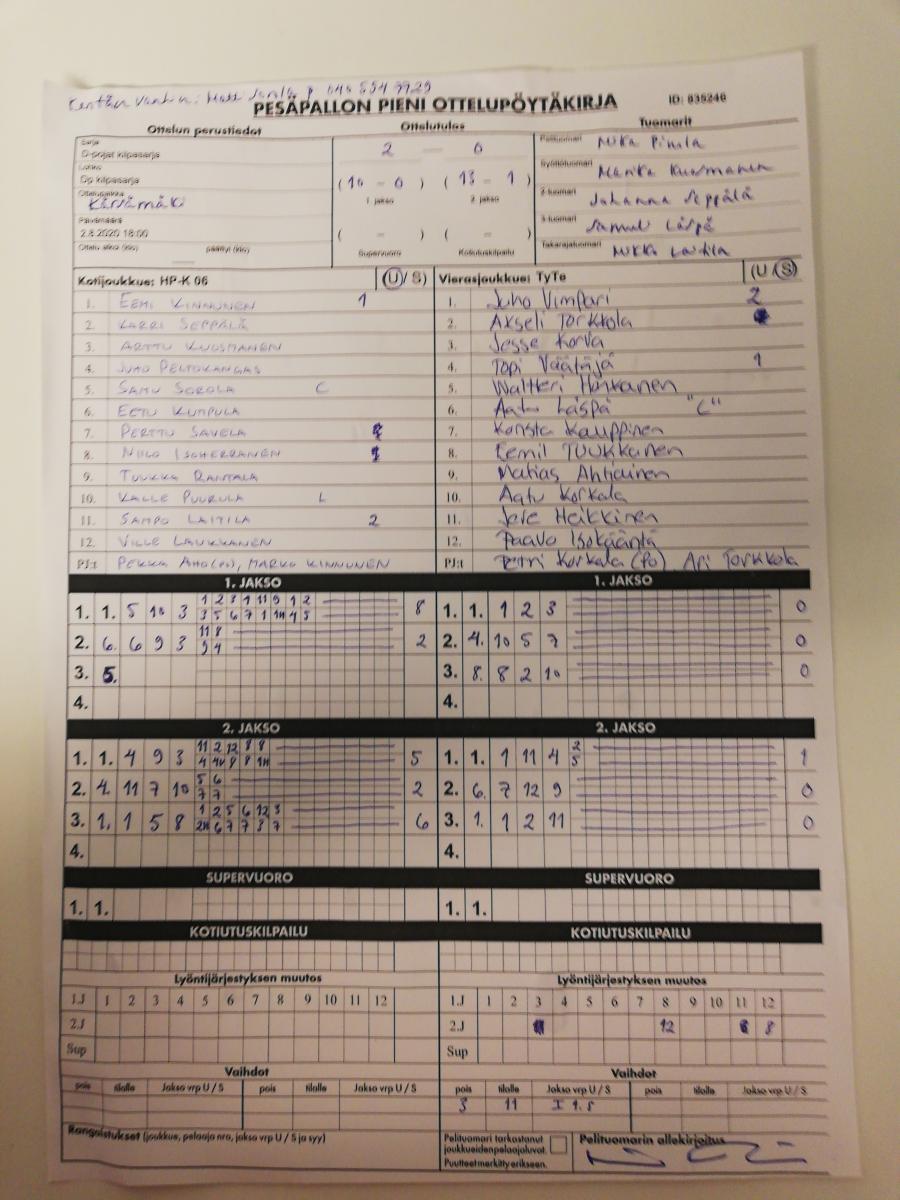 Kentän vanhin: Matti
PESÄPALLON PIENI OTTELUPÖYTÄKIRJA ID: 835246
Ottelun perustiedot Ottelutulos Tuomarit
Sarja
D-pojat kilpasarja
2 - 0
Pelituomari Mika Pirilä
Lohko
Dp kilpasarja
(10 - 0) (13 - 1)
Syöttötuomari Marika Kuusmanen
Ottelupaikka
Kärsämäki
1. jakso 2. jakso
2-tuomari Johanna Seppälä
Päivämäärä
2.8.2020 18:00
( - ) ( - )
3-tuomari Samuli Läspä
Ottelu alkoi (klo) päättyi (klo)
Supervuoro Kotiutuskilpailu
Takarajatuomari Mikko Laitila
Kotijoukkue: HP-K 06 (U / S) Vierasjoukkue: TyTe (U / S)
1. EEMI KINNUNEN 1 1. Juho Vimpari 2
2. KARRI SEPPÄLÄ 2. Akseli Torkkola
3. ARTTU KUUSMANEN 3. Jesse Korva
4. JUHO PELTOKANGAS 4. Topi Väätäjä 1
5. SAMU SOROLA C 5. Waltteri
6. EETU KUMPULA 6. Aatu Läspä "C"
7. PERTTU SAVELA 7. Konsta Kauppinen
8. NIILO ISOHERRANEN 8. Eemil Tuukkanen
9. TUUKKA RANTALA 9. Matias Ahtiainen
10. KALLE PUURULA L 10. Aatu Korkala
11. SAMPO LAITILA 2 11. Jere Heikkinen
12. VILLE LAUKKANEN 12. Paavo Isokääntä
PJ:t PEKKA AHO(PJ), MARKO KINNUNEN PJ:t Petri Korkala (PJ), Ari Torkkola
1. JAKSO 1. JAKSO
1. 1. 5 10 3 1 2 3 1 11 9 1 2 8 1. 1. 1 2 3 0
3 5 6 7 1 1H 4 5
2. 6. 6 9 3 11 8 2 2. 4. 10 5 7 0
9 4
3. 5. 3. 8. 8 2 10 0
4. 4.
2. JAKSO 2. JAKSO
1. 1. 4 9 3 11 2 12 8 8 5 1. 1. 1 11 4 2 1
4 4H 8 8 1H 5
2. 4. 11 7 10 5 6 2 2. 6. 7 12 9 0
7 7
3. 1. 1 5 8 1 2 5 6 12 3 6 3. 1. 1 2 11 0
2H 6 7 7 3 7
4. 4.
SUPERVUORO SUPERVUORO
1. 1. 1. 1.
KOTIUTUSKILPAILU KOTIUTUSKILPAILU
Lyöntijärjestyksen muutos Lyöntijärjestyksen muutos
1.J 1 2 3 4 5 6 7 8 9 10 11 12 1.J 1 2 3 4 5 6 7 8 9 10 11 12
2.J 2.J 12 8
Sup Sup
Vaihdot Vaihdot
pois tilalle Jakso vrp U / S pois tilalle Jakso vrp U / S pois tilalle Jakso vrp U / S pois tilalle Jakso vrp U / S
3 11 I 1.S
Rangaistukset (joukkue, pelaaja nro, jakso vrp U / S ja syy)
Pelituomari tarkastanut
joukkueiden pelaajaluvat.
Puutteet merkitty erikseen.
Pelituomarin allekirjoitus